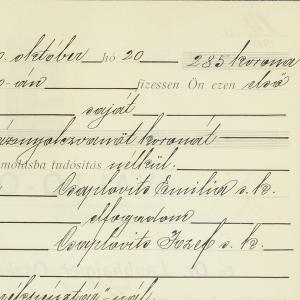 október hó 20 285 korona
-án fizessen Ön ezen első
saját
koronát
tudósítás nélkül.
Csaplovits Emilia s. k.
elfogadom
Csaplovits József s. k.